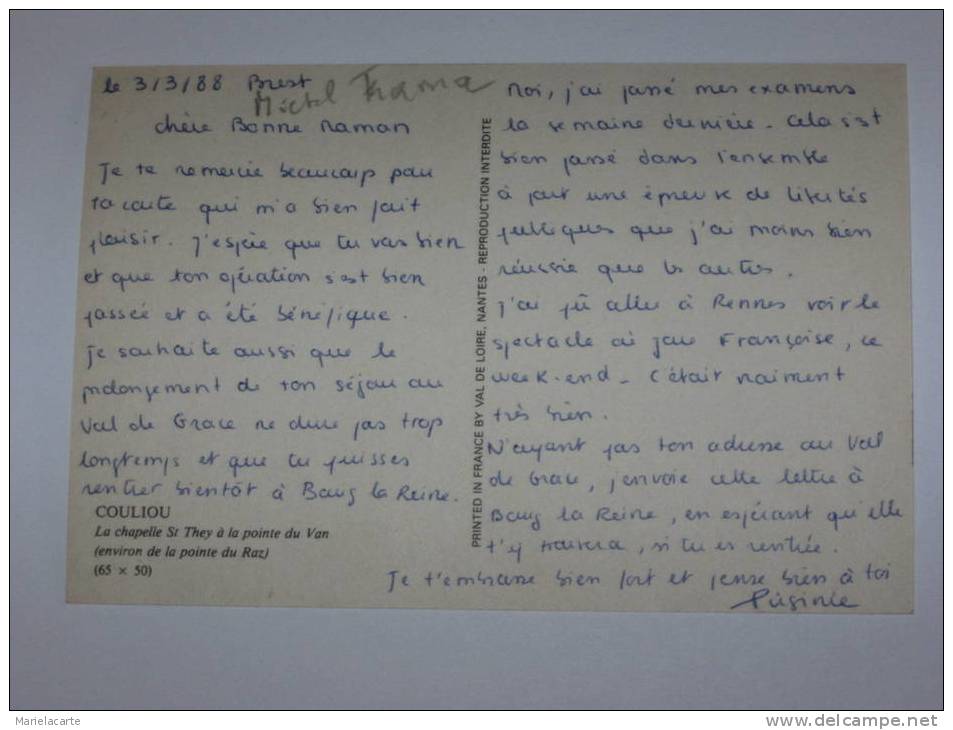 le 3/3/88 Brest
Michel
chère Bonne Maman
Je te remercie beaucoup pour
ta carte qui m'a bien fait
plaisir. J'espère que tu vas bien
et que ton opération s'est bien
passée et a été bénéfique.
Je souhaite aussi que le
prolongement de ton séjour au
Val de Grace ne dure pas trop
longtemps et que tu puisses
rentrer bientôt à Bourg la Reine.
COULIOU
La chapelle St They à la pointe du Van
(environ de la pointe du Raz)
(65 × 50)
PRINTED IN FRANCE BY VAL DE LOIRE, NANTES - REPRODUCTION INTERDITE
Moi, j'ai passé mes examens
la semaine dernière. Cela s'est
bien passé dans l'ensemble
à part une épreuve de libertés
publiques que j'ai moins bien
réussie que les autres.
J'ai pû aller à Rennes voir le
spectacle où joue Françoise, ce
week-end. C'était vraiment
très bien.
N'ayant pas ton adresse au Val
de Grace, j'envoie cette lettre à
Bourg la Reine, en espérant qu'elle
t'y trouvera, si tu es rentrée.
Je t'embrasse bien fort et pense bien à toi
Marielacarte
www.delcampe.net